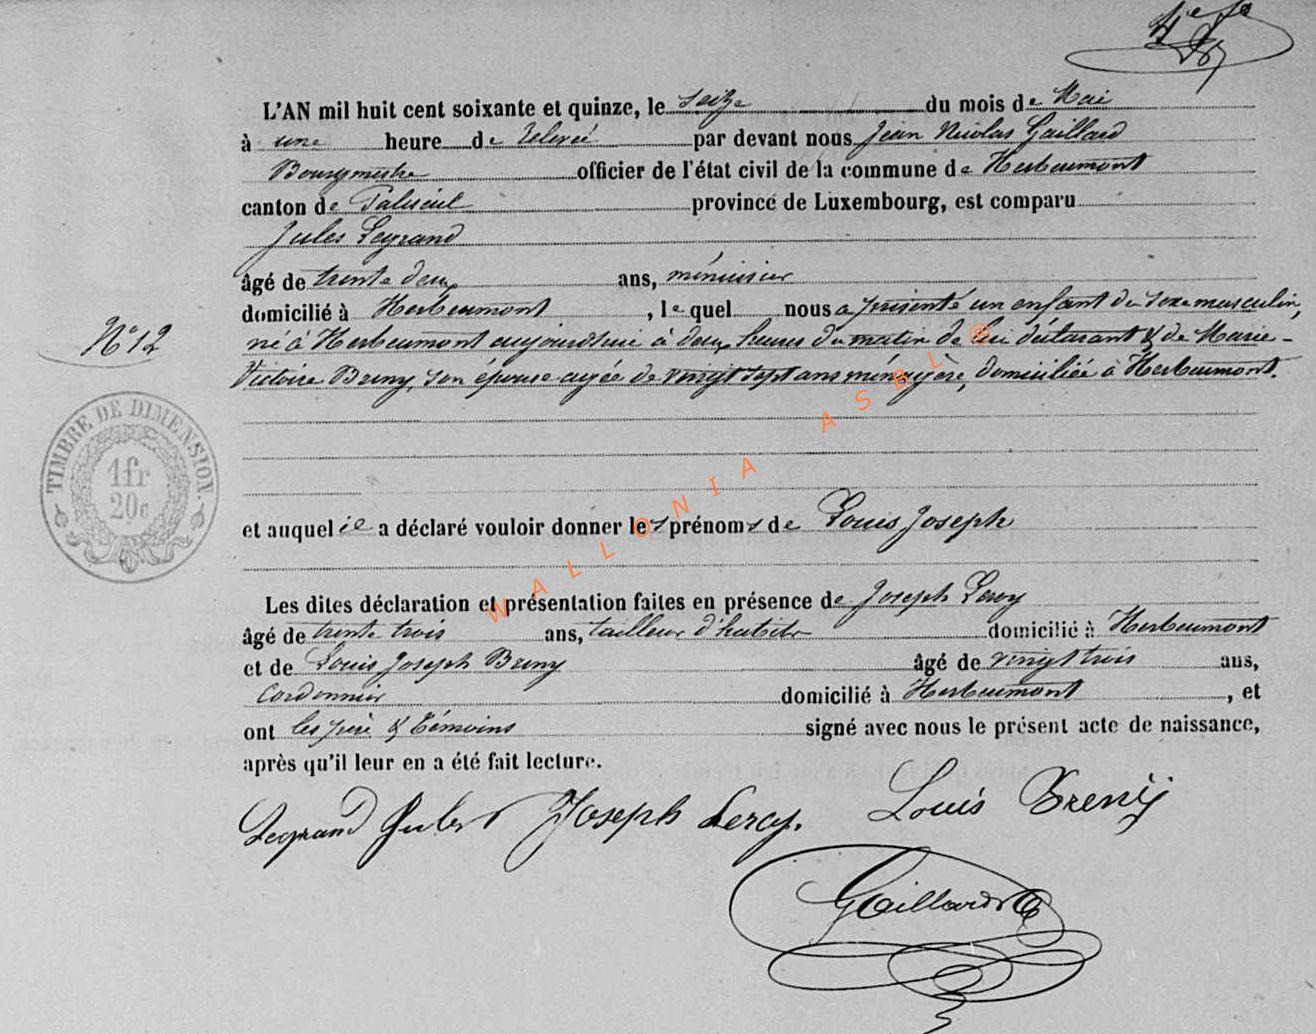 N° 12
TIMBRE DE DIMENSION.
1fr
20c
L'AN mil huit cent soixante et quinze, le seize du mois de Mai
à une heure de relevée par devant nous Jean Nicolas Gaillard
Bourgmestre officier de l'état civil de la commune de Herbeumont
canton de Paliseul province de Luxembourg, est comparu
Jules Legrand
âgé de trente deux ans, ménuisier
domicilié à Herbeumont, lequel nous a présenté un enfant du sexe masculin,
né à Herbeumont aujourd'hui à deux heures du matin de lui déclarant & de Marie-
Victoire Breny, son épouse agée de vingt sept ans ménagère, domiciliée à Herbeumont.
et auquel il a déclaré vouloir donner les prénoms de Louis Joseph
Les dites déclaration et présentation faites en présence de Joseph Leroy
âgé de trente trois ans, tailleur d'habits domicilié à Herbeumont
et de Louis Joseph Breny âgé de vingt trois ans,
Cordonnier domicilié à Herbeumont, et
ont les père & témoins signé avec nous le présent acte de naissance,
après qu'il leur en a été fait lecture.
Legrand Jules Joseph Leroy. Louis Breny
Gaillard
WALLONIA ASBL ®